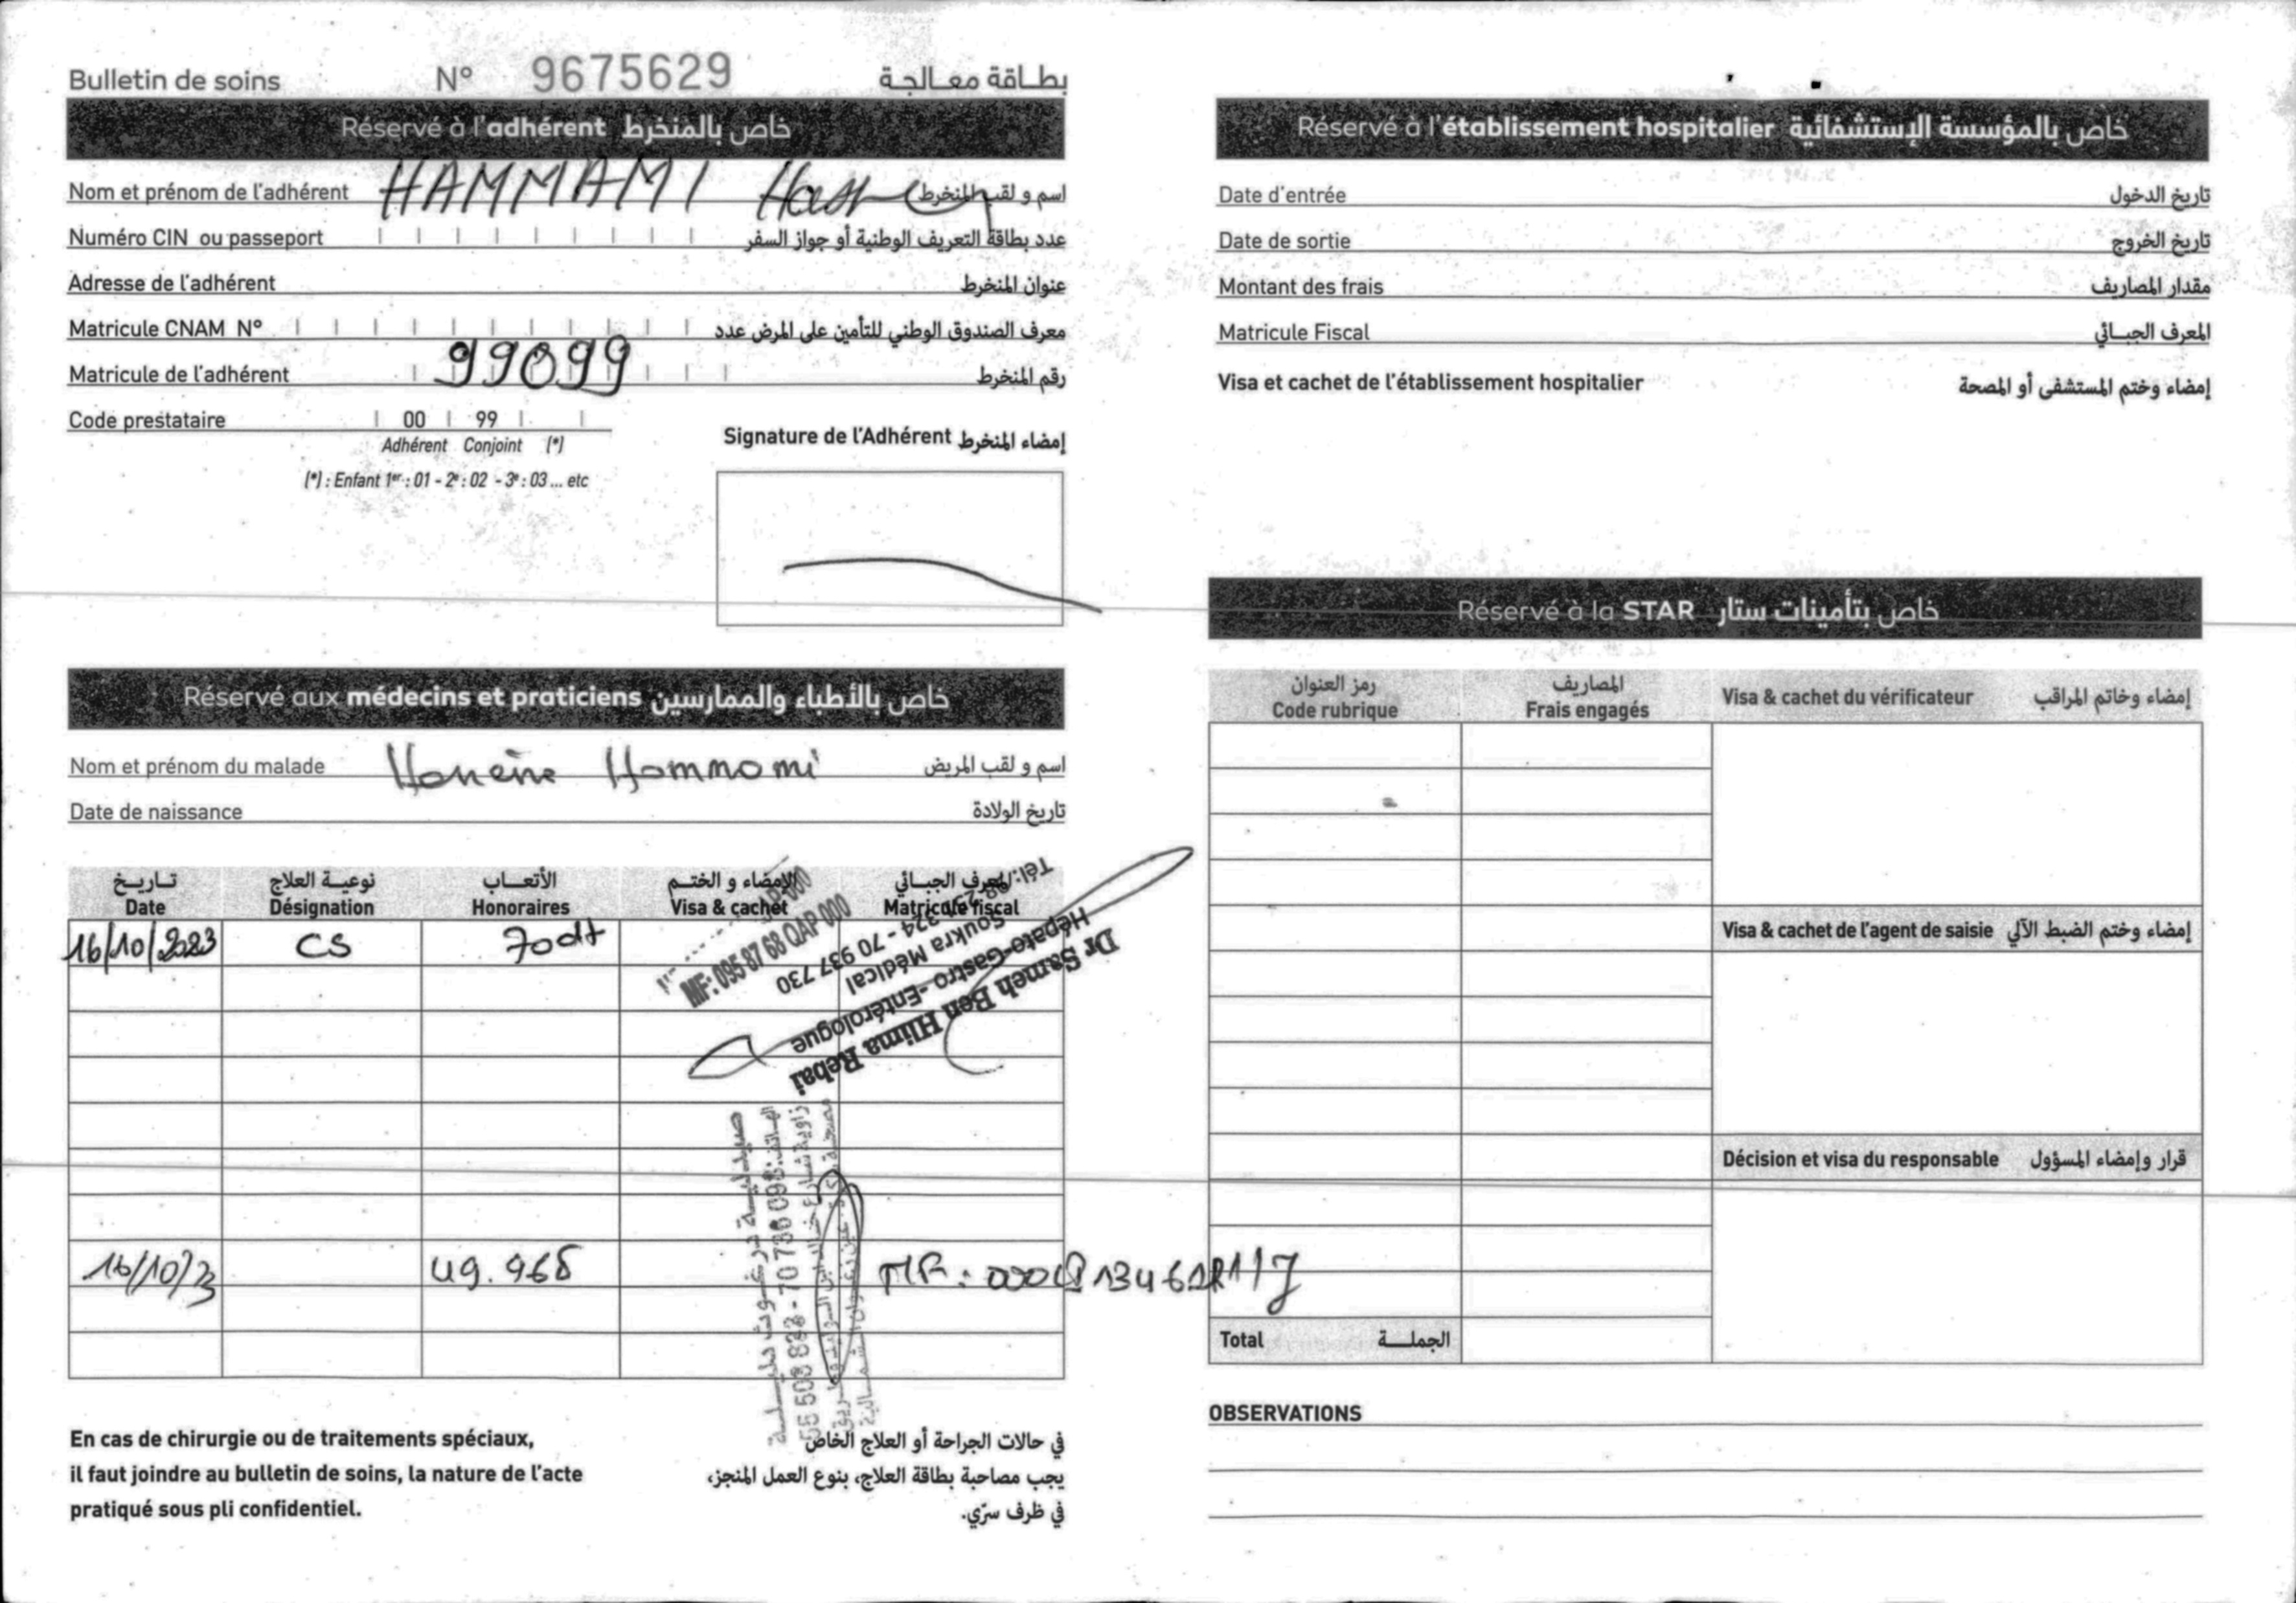 Bulletin de soins N° 9675629 بطاقة معالجة
Réservé à l'adhérent خاص بالمنخرط
Nom et prénom de l'adhérent HAMMAMI اسم و لقب المنخرط
Numéro CIN ou passeport عدد بطاقة التعريف الوطنية أو جواز السفر
Adresse de l'adhérent عنوان المنخرط
Matricule CNAM N° معرف الصندوق الوطني للتأمين على المرض عدد
Matricule de l'adhérent 99099 رقم المنخرط
Code prestataire 00 99
Adhérent Conjoint (*)
(*) : Enfant 1er : 01 - 2e : 02 - 3e : 03 ... etc
Signature de l'Adhérent إمضاء المنخرط
Réservé aux médecins et praticiens خاص بالأطباء والممارسين
Nom et prénom du malade Haneine Hammami اسم و لقب المريض
Date de naissance تاريخ الولادة
تاريخ نوعية العلاج الأتعاب الإمضاء و الختم المعرف الجبائي
Date Désignation Honoraires Visa & cachet Matricule fiscal
16/10/2023 CS 70dt
MF: 095 87 68 QAP 000
Dr Sameh Ben Hlima Rebai
Hépato-Gastro-Entérologue
Soukra Médical
374 - 70 937 730
16/10/23 49.968
En cas de chirurgie ou de traitements spéciaux,
il faut joindre au bulletin de soins, la nature de l'acte
pratiqué sous pli confidentiel.
في حالات الجراحة أو العلاج الخاص
يجب مصاحبة بطاقة العلاج، بنوع العمل المنجز،
في ظرف سرّي.
Réservé à l'établissement hospitalier خاص بالمؤسسة الإستشفائية
Date d'entrée تاريخ الدخول
Date de sortie تاريخ الخروج
Montant des frais مقدار المصاريف
Matricule Fiscal المعرف الجبائي
Visa et cachet de l'établissement hospitalier إمضاء وختم المستشفى أو المصحة
Réservé à la STAR خاص بتأمينات ستار
رمز العنوان المصاريف
Code rubrique Frais engagés
Visa & cachet du vérificateur إمضاء وخاتم المراقب
Visa & cachet de l'agent de saisie إمضاء وختم الضبط الآلي
Décision et visa du responsable قرار وإمضاء المسؤول
Total الجملة
OBSERVATIONS